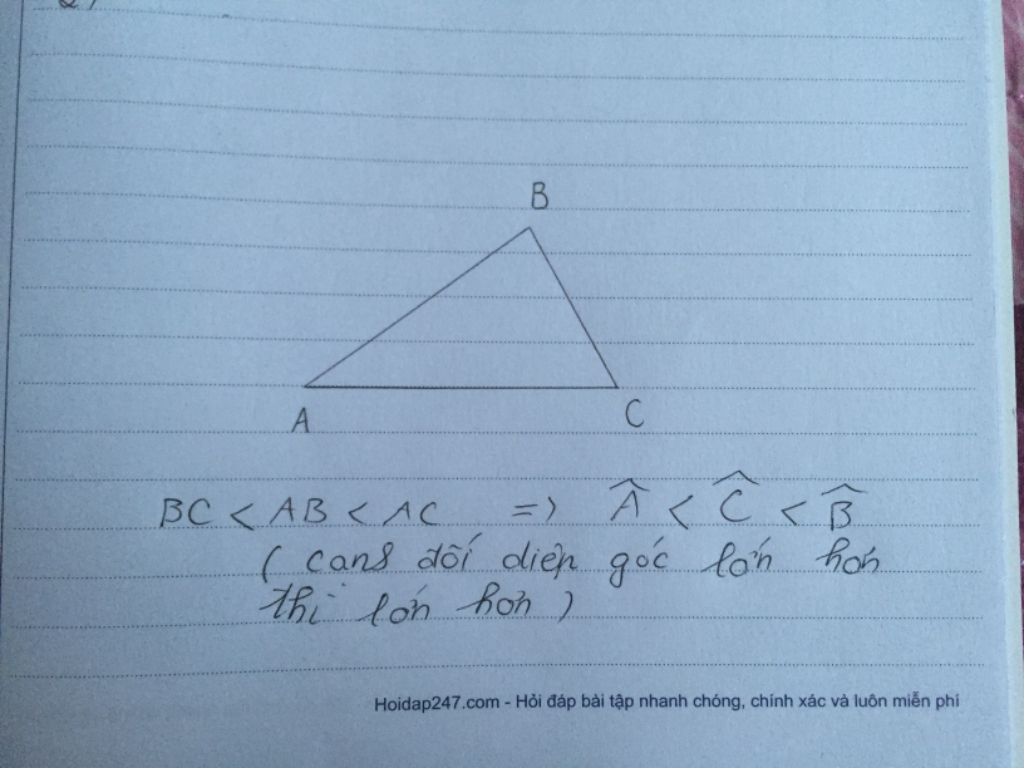 B
A
C
BC < AB < AC => Â < Ĉ < B̂
( cans đối diện góc lớn hơn
thì lớn hơn )
Hoidap247.com - Hỏi đáp bài tập nhanh chóng, chính xác và luôn miễn phí